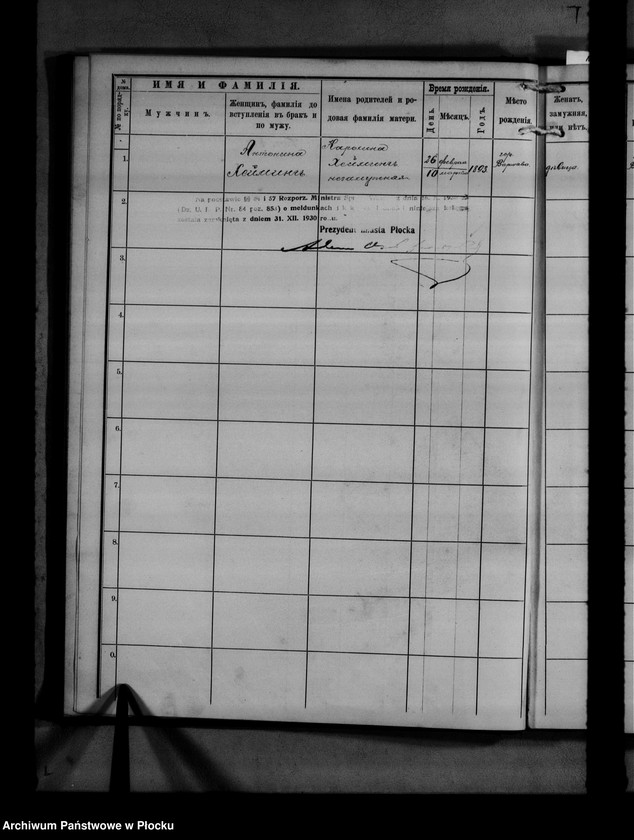 № дома.
ИМЯ И ФАМИЛІЯ.
№ по порядку.
Мужчинъ.
Женщинъ, фамилія до
вступленія въ бракъ и
по мужу.
Имена родителей и ро-
довая фамилія матери.
Время рожденія.
День.
Мѣсяцъ.
Годъ.
Мѣсто
рожденія.
Женатъ,
замужняя,
или нѣтъ.
1.
Антонина
Хеймингъ
Каролина
Хеймингъ
незамужняя
26 февраля
10 марта
1893
гор.
Варшава
дѣвица
2.
Na podstawie §§ 56 i 57 Rozporz. Ministra
(Dz. U. R. P. Nr. 84 poz. 653) o meldunkach i
została zamknięta z dniem 31. XII. 1930 rok
Prezydent miasta Płocka
3.
4.
5.
6.
7.
8.
9.
0.
Archiwum Państwowe w Płocku